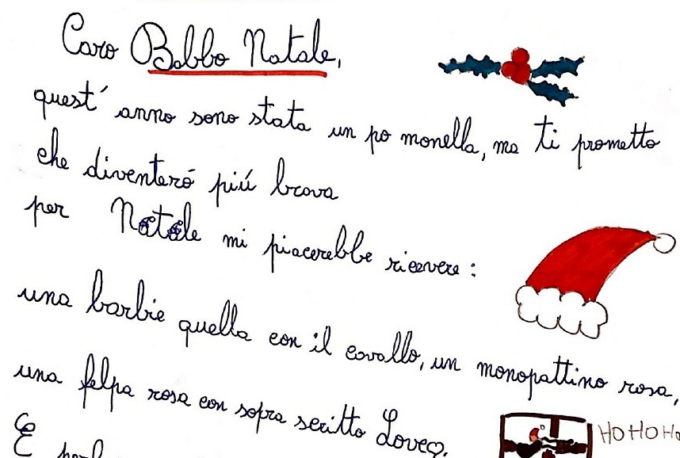 Caro Babbo Natale,
quest' anno sono stata un po monella, ma ti prometto
che diventeró piú brava
per Natale mi piacerebbe ricevere:
una barbie quella con il cavallo, un monopattino rosa,
una felpa rosa con sopra scritto Love.
HO HO Ho
E